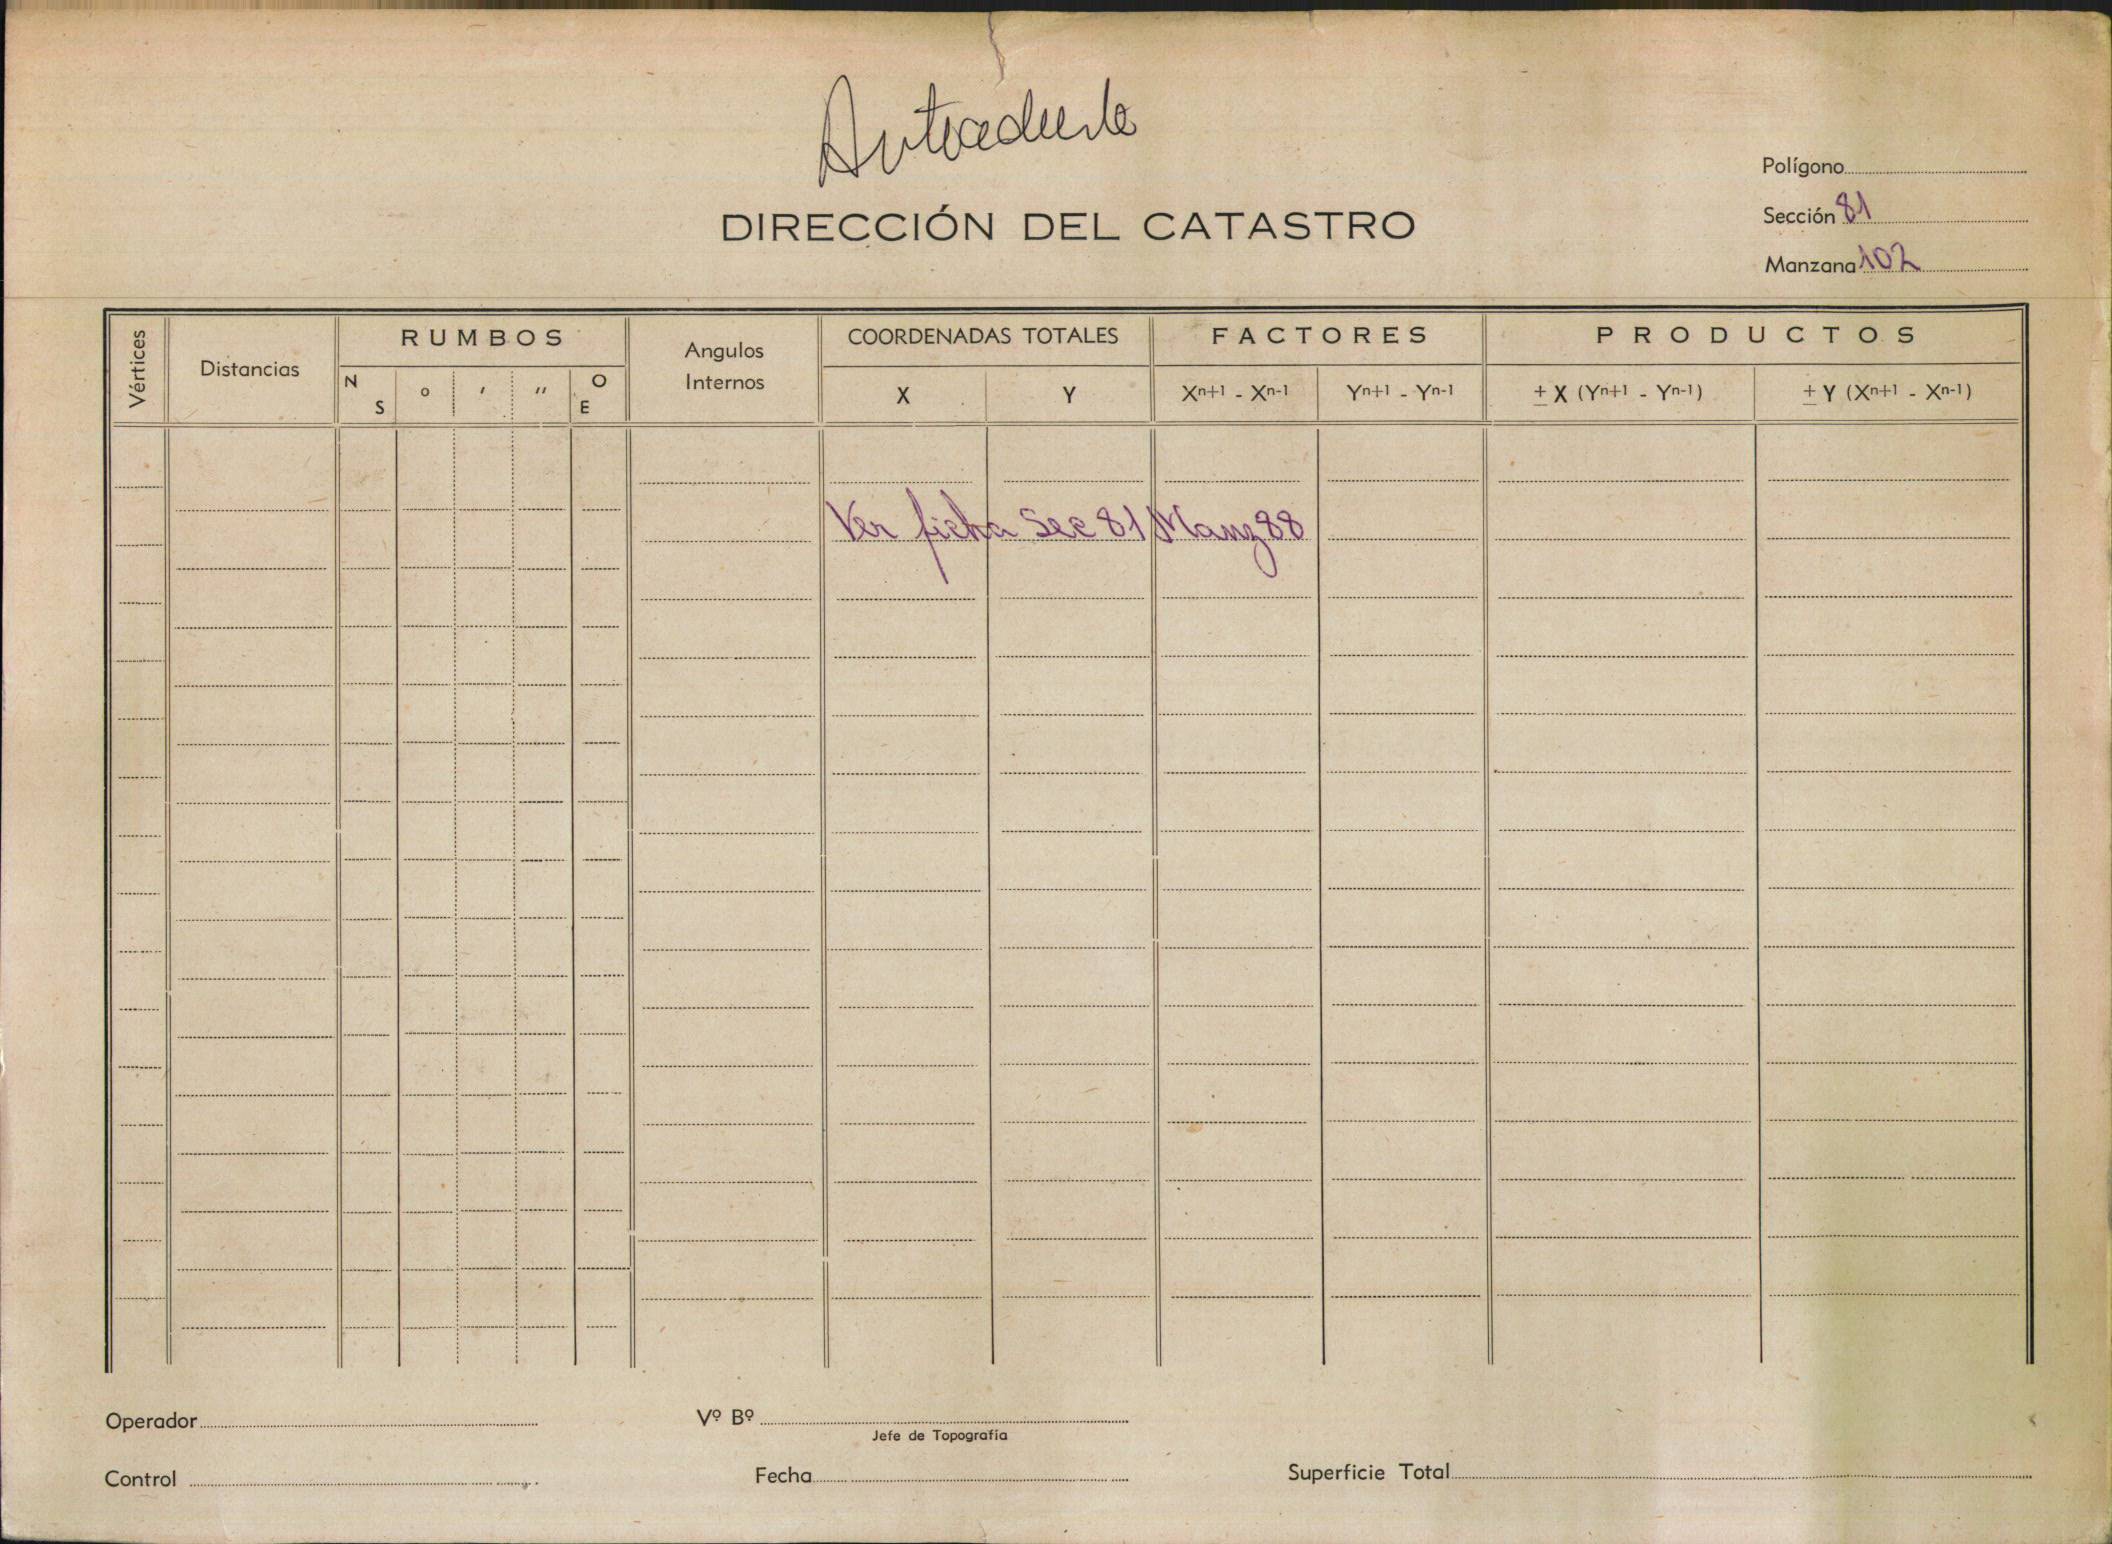 Antecedente
DIRECCIÓN DEL CATASTRO
Polígono
Sección 81
Manzana 102
Vértices
Distancias
RUMBOS
N S
o
'
"
O E
Angulos
Internos
COORDENADAS TOTALES
X
Y
FACTORES
Xn+1 - Xn-1
Yn+1 - Yn-1
PRODUCTOS
± X (Yn+1 - Yn-1)
± Y (Xn+1 - Xn-1)
Ver ficha Sec 81 Manz 88
Operador
Vº Bº
Jefe de Topografía
Control
Fecha
Superficie Total